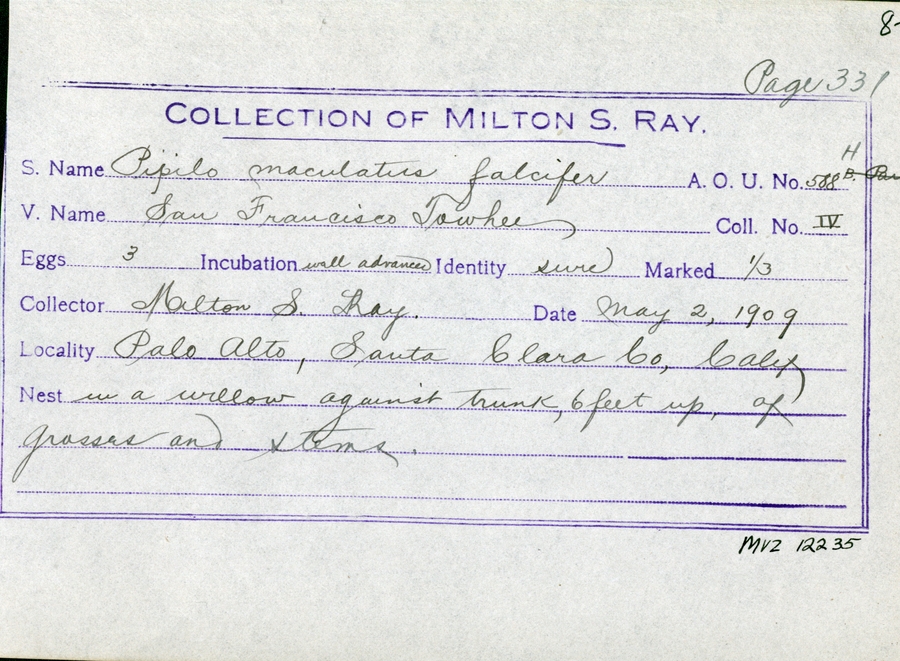 8-
Page 331
COLLECTION OF MILTON S. RAY.
S. Name Pipilo maculatus falcifer A. O. U. No. 588 H
V. Name San Francisco Towhee Coll. No. IV
Eggs 3 Incubation well advanced Identity sure Marked 1/3
Collector Milton S. Ray. Date May 2, 1909
Locality Palo Alto, Santa Clara Co, Calif
Nest in a willow against trunk, 6 feet up, of
grasses and stems.
MVZ 12235